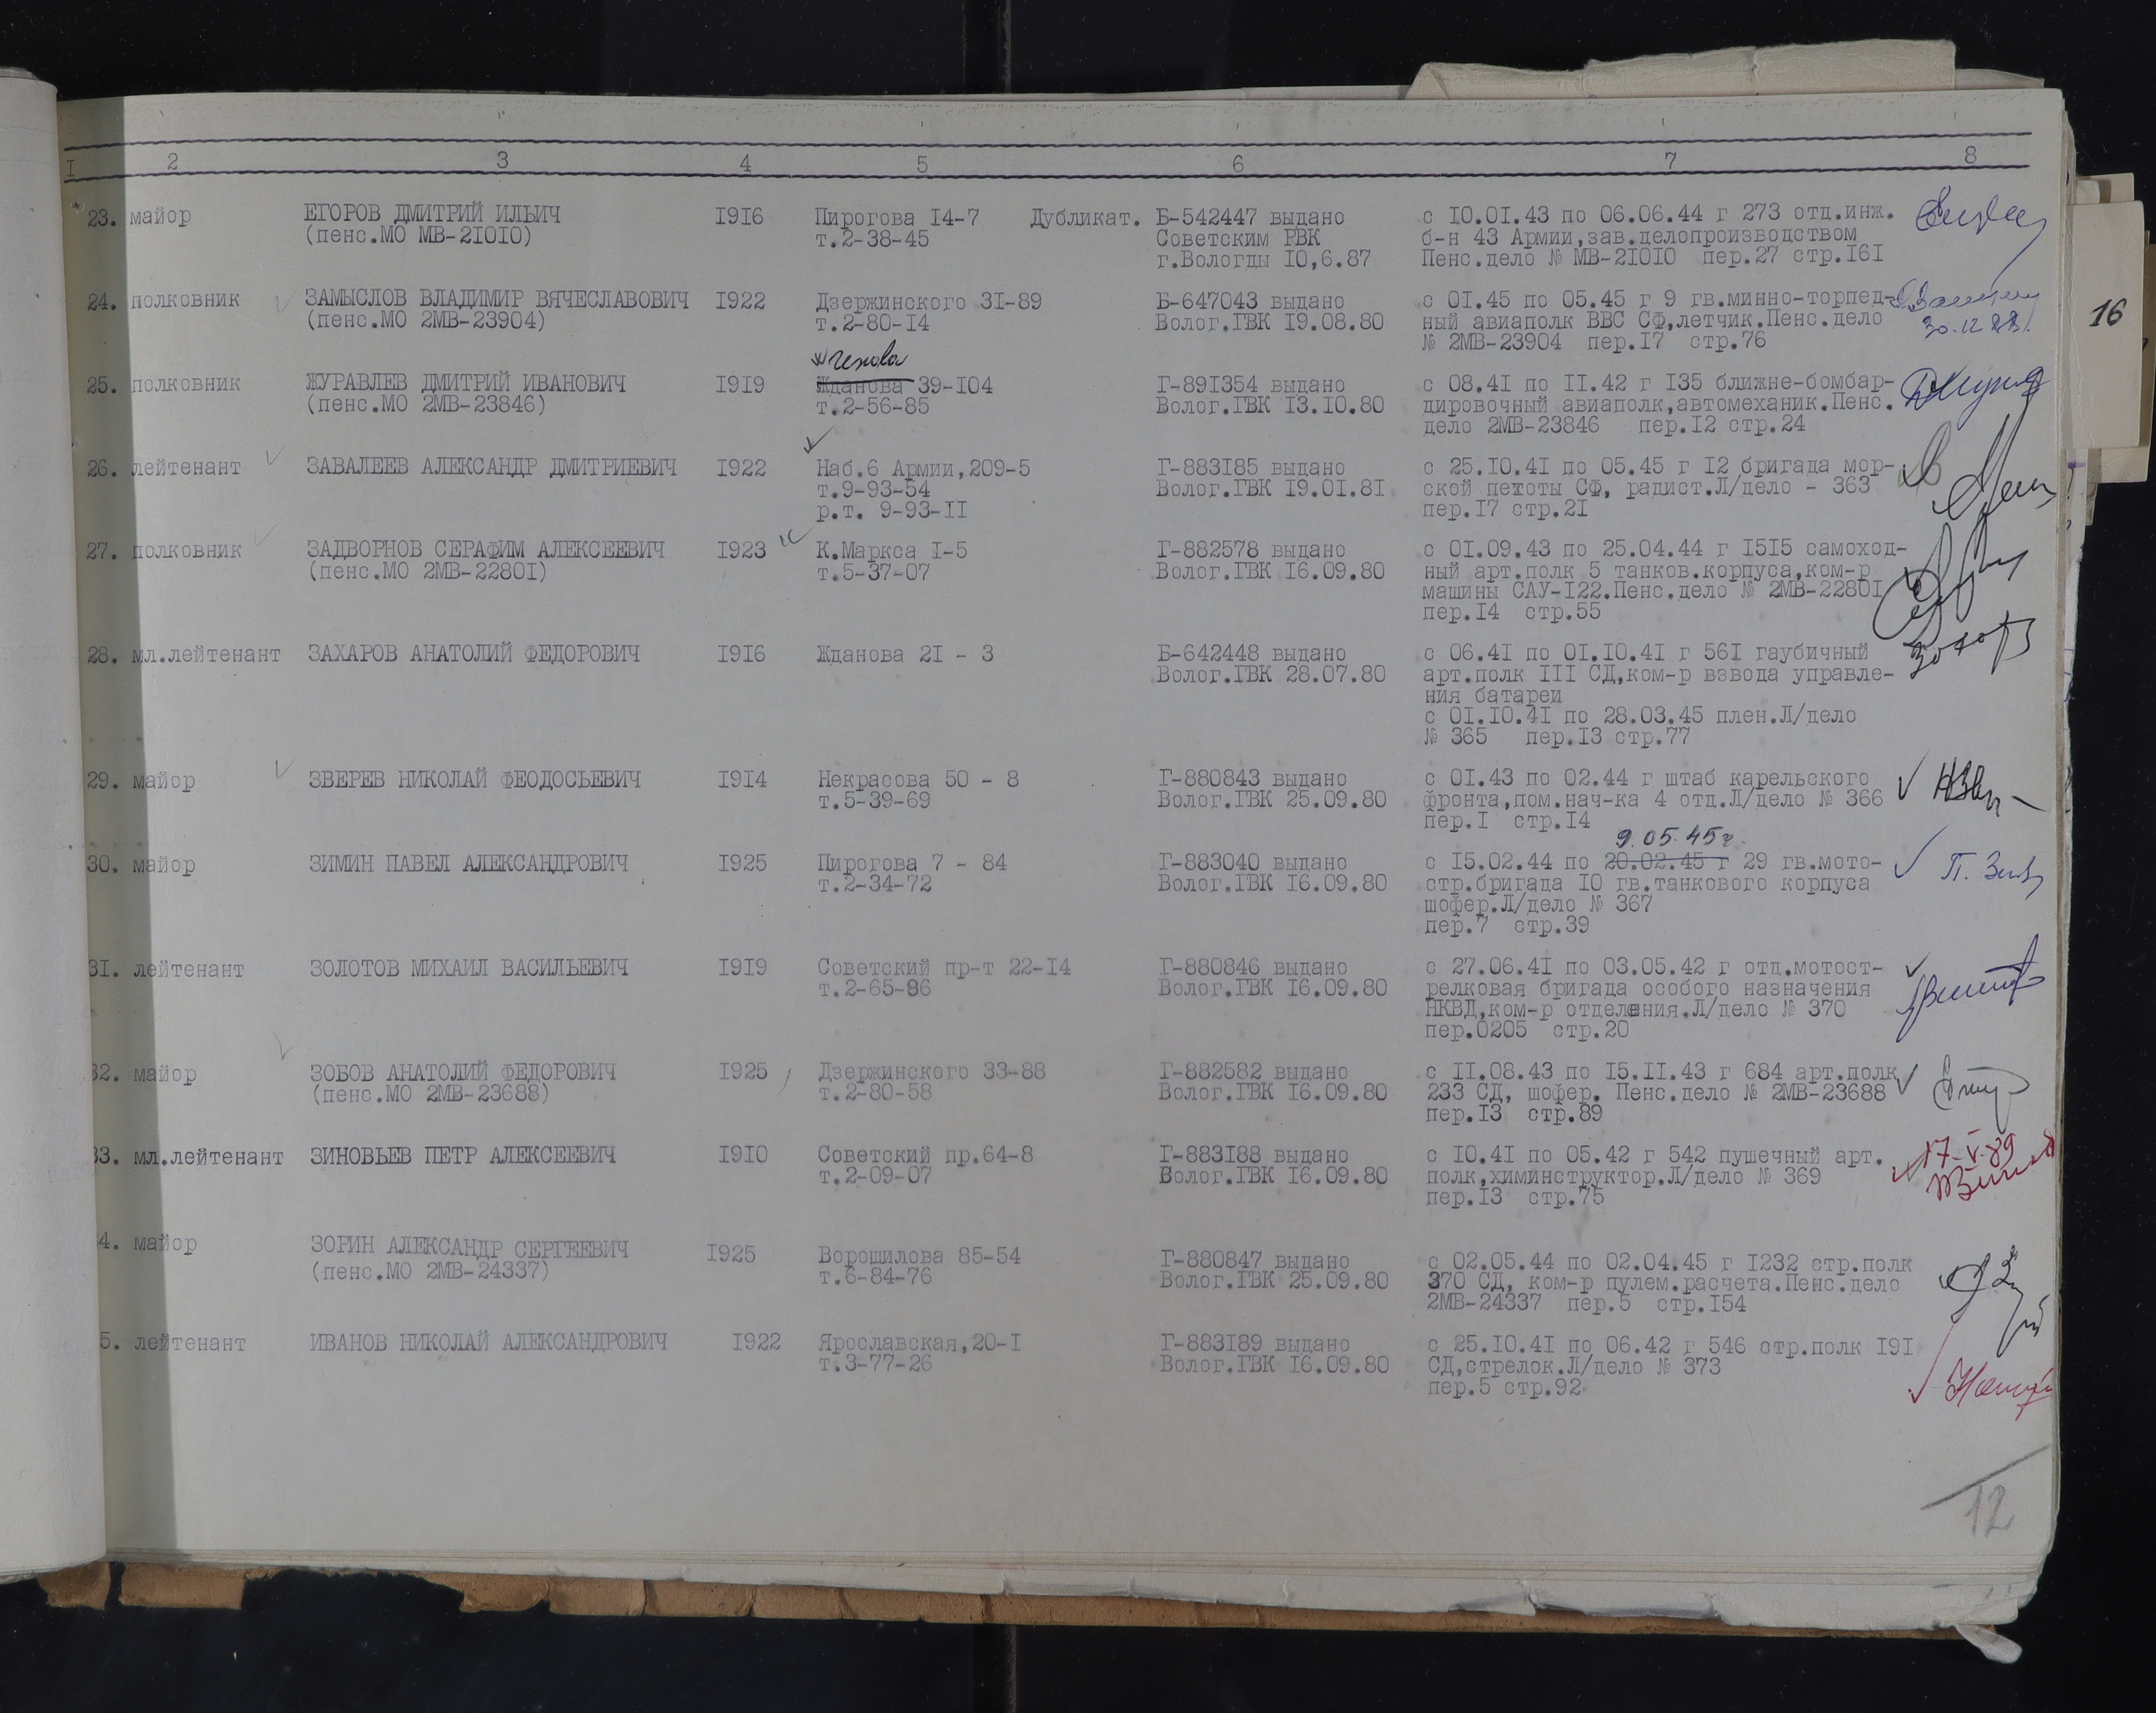 I 2 3 4 5 6 7 8
23. майор ЕГОРОВ ДМИТРИЙ ИЛЬИЧ I9I6 Пирогова I4-7 Дубликат. Б-542447 выдано с IO.OI.43 по 06.06.44 г 273 отд.инж.
(пенс.МО МВ-2IOIO) т.2-38-45 Советским РВК б-н 43 Армии,зав.делопроизводством
г.Вологды IO,6.87 Пенс.дело № МВ-2IOIO пер.27 стр.I6I
24. полковник ЗАМЫСЛОВ ВЛАДИМИР ВЯЧЕСЛАВОВИЧ I922 Дзержинского 3I-89 Б-647043 выдано с OI.45 по 05.45 г 9 гв.минно-торпед-
(пенс.МО 2МВ-23904) т.2-80-I4 Волог.ГВК I9.08.80 ный авиаполк ВВС СФ,летчик.Пенс.дело 30.12.88г.
№ 2МВ-23904 пер.I7 стр.76
16
Чехова
25. полковник ЖУРАВЛЕВ ДМИТРИЙ ИВАНОВИЧ I9I9 Жданова 39-IO4 Г-89I354 выдано с 08.4I по II.42 г I35 ближне-бомбар-
(пенс.МО 2МВ-23846) т.2-56-85 Волог.ГВК I3.IO.80 дировочный авиаполк,автомеханик.Пенс.
дело 2МВ-23846 пер.I2 стр.24
26. лейтенант ЗАВАЛЕЕВ АЛЕКСАНДР ДМИТРИЕВИЧ I922 Наб.6 Армии,209-5 Г-883I85 выдано с 25.IO.4I по 05.45 г I2 бригада мор-
т.9-93-54 Волог.ГВК I9.OI.8I ской пехоты СФ, радист.Л/дело - 363
р.т. 9-93-II пер.I7 стр.2I
27. полковник ЗАДВОРНОВ СЕРАФИМ АЛЕКСЕЕВИЧ I923 К.Маркса I-5 Г-882578 выдано с OI.09.43 по 25.04.44 г I5I5 самоход-
(пенс.МО 2МВ-2280I) т.5-37-07 Волог.ГВК I6.09.80 ный арт.полк 5 танков.корпуса,ком-р
машины САУ-I22.Пенс.дело № 2МВ-2280I
пер.I4 стр.55
28. мл.лейтенант ЗАХАРОВ АНАТОЛИЙ ФЕДОРОВИЧ I9I6 Жданова 2I - 3 Б-642448 выдано с 06.4I по OI.IO.4I г 56I гаубичный
Волог.ГВК 28.07.80 арт.полк III СД,ком-р взвода управле-
ния батареи
с OI.IO.4I по 28.03.45 плен.Л/дело
№ 365 пер.I3 стр.77
29. майор ЗВЕРЕВ НИКОЛАЙ ФЕОДОСЬЕВИЧ I9I4 Некрасова 50 - 8 Г-880843 выдано с OI.43 по 02.44 г штаб карельского
т.5-39-69 Волог.ГВК 25.09.80 фронта,пом.нач-ка 4 отд.Л/дело № 366
пер.I стр.I4
9.05.45г.
30. майор ЗИМИН ПАВЕЛ АЛЕКСАНДРОВИЧ I925 Пирогова 7 - 84 Г-883040 выдано с I5.02.44 по 20.02.45 г 29 гв.мото-
т.2-34-72 Волог.ГВК I6.09.80 стр.бригада IO гв.танкового корпуса
шофер.Л/дело № 367
пер.7 стр.39
3I. лейтенант ЗОЛОТОВ МИХАИЛ ВАСИЛЬЕВИЧ I9I9 Советский пр-т 22-I4 Г-880846 выдано с 27.06.4I по 03.05.42 г отд.мотост-
т.2-65-86 Волог.ГВК I6.09.80 релковая бригада особого назначения
НКВД,ком-р отделения.Л/дело № 370
пер.0205 стр.20
32. майор ЗОБОВ АНАТОЛИЙ ФЕДОРОВИЧ I925 Дзержинского 33-88 Г-882582 выдано с II.08.43 по I5.II.43 г 684 арт.полк
(пенс.МО 2МВ-23688) т.2-80-58 Волог.ГВК I6.09.80 233 СД, шофер. Пенс.дело № 2МВ-23688
пер.I3 стр.89
33. мл.лейтенант ЗИНОВЬЕВ ПЕТР АЛЕКСЕЕВИЧ I9IO Советский пр.64-8 Г-883I88 выдано с IO.4I по 05.42 г 542 пушечный арт. 17-V-89
т.2-09-07 Волог.ГВК I6.09.80 полк,химинструктор.Л/дело № 369
пер.I3 стр.75
4. майор ЗОРИН АЛЕКСАНДР СЕРГЕЕВИЧ I925 Ворошилова 85-54 Г-880847 выдано с 02.05.44 по 02.04.45 г I232 стр.полк
(пенс.МО 2МВ-24337) т.6-84-76 Волог.ГВК 25.09.80 370 СД, ком-р пулем.расчета.Пенс.дело
2МВ-24337 пер.5 стр.I54
5. лейтенант ИВАНОВ НИКОЛАЙ АЛЕКСАНДРОВИЧ I922 Ярославская,20-I Г-883I89 выдано с 25.IO.4I по 06.42 г 546 стр.полк I9I
т.3-77-26 Волог.ГВК I6.09.80 СД,стрелок.Л/дело № 373
пер.5 стр.92
12